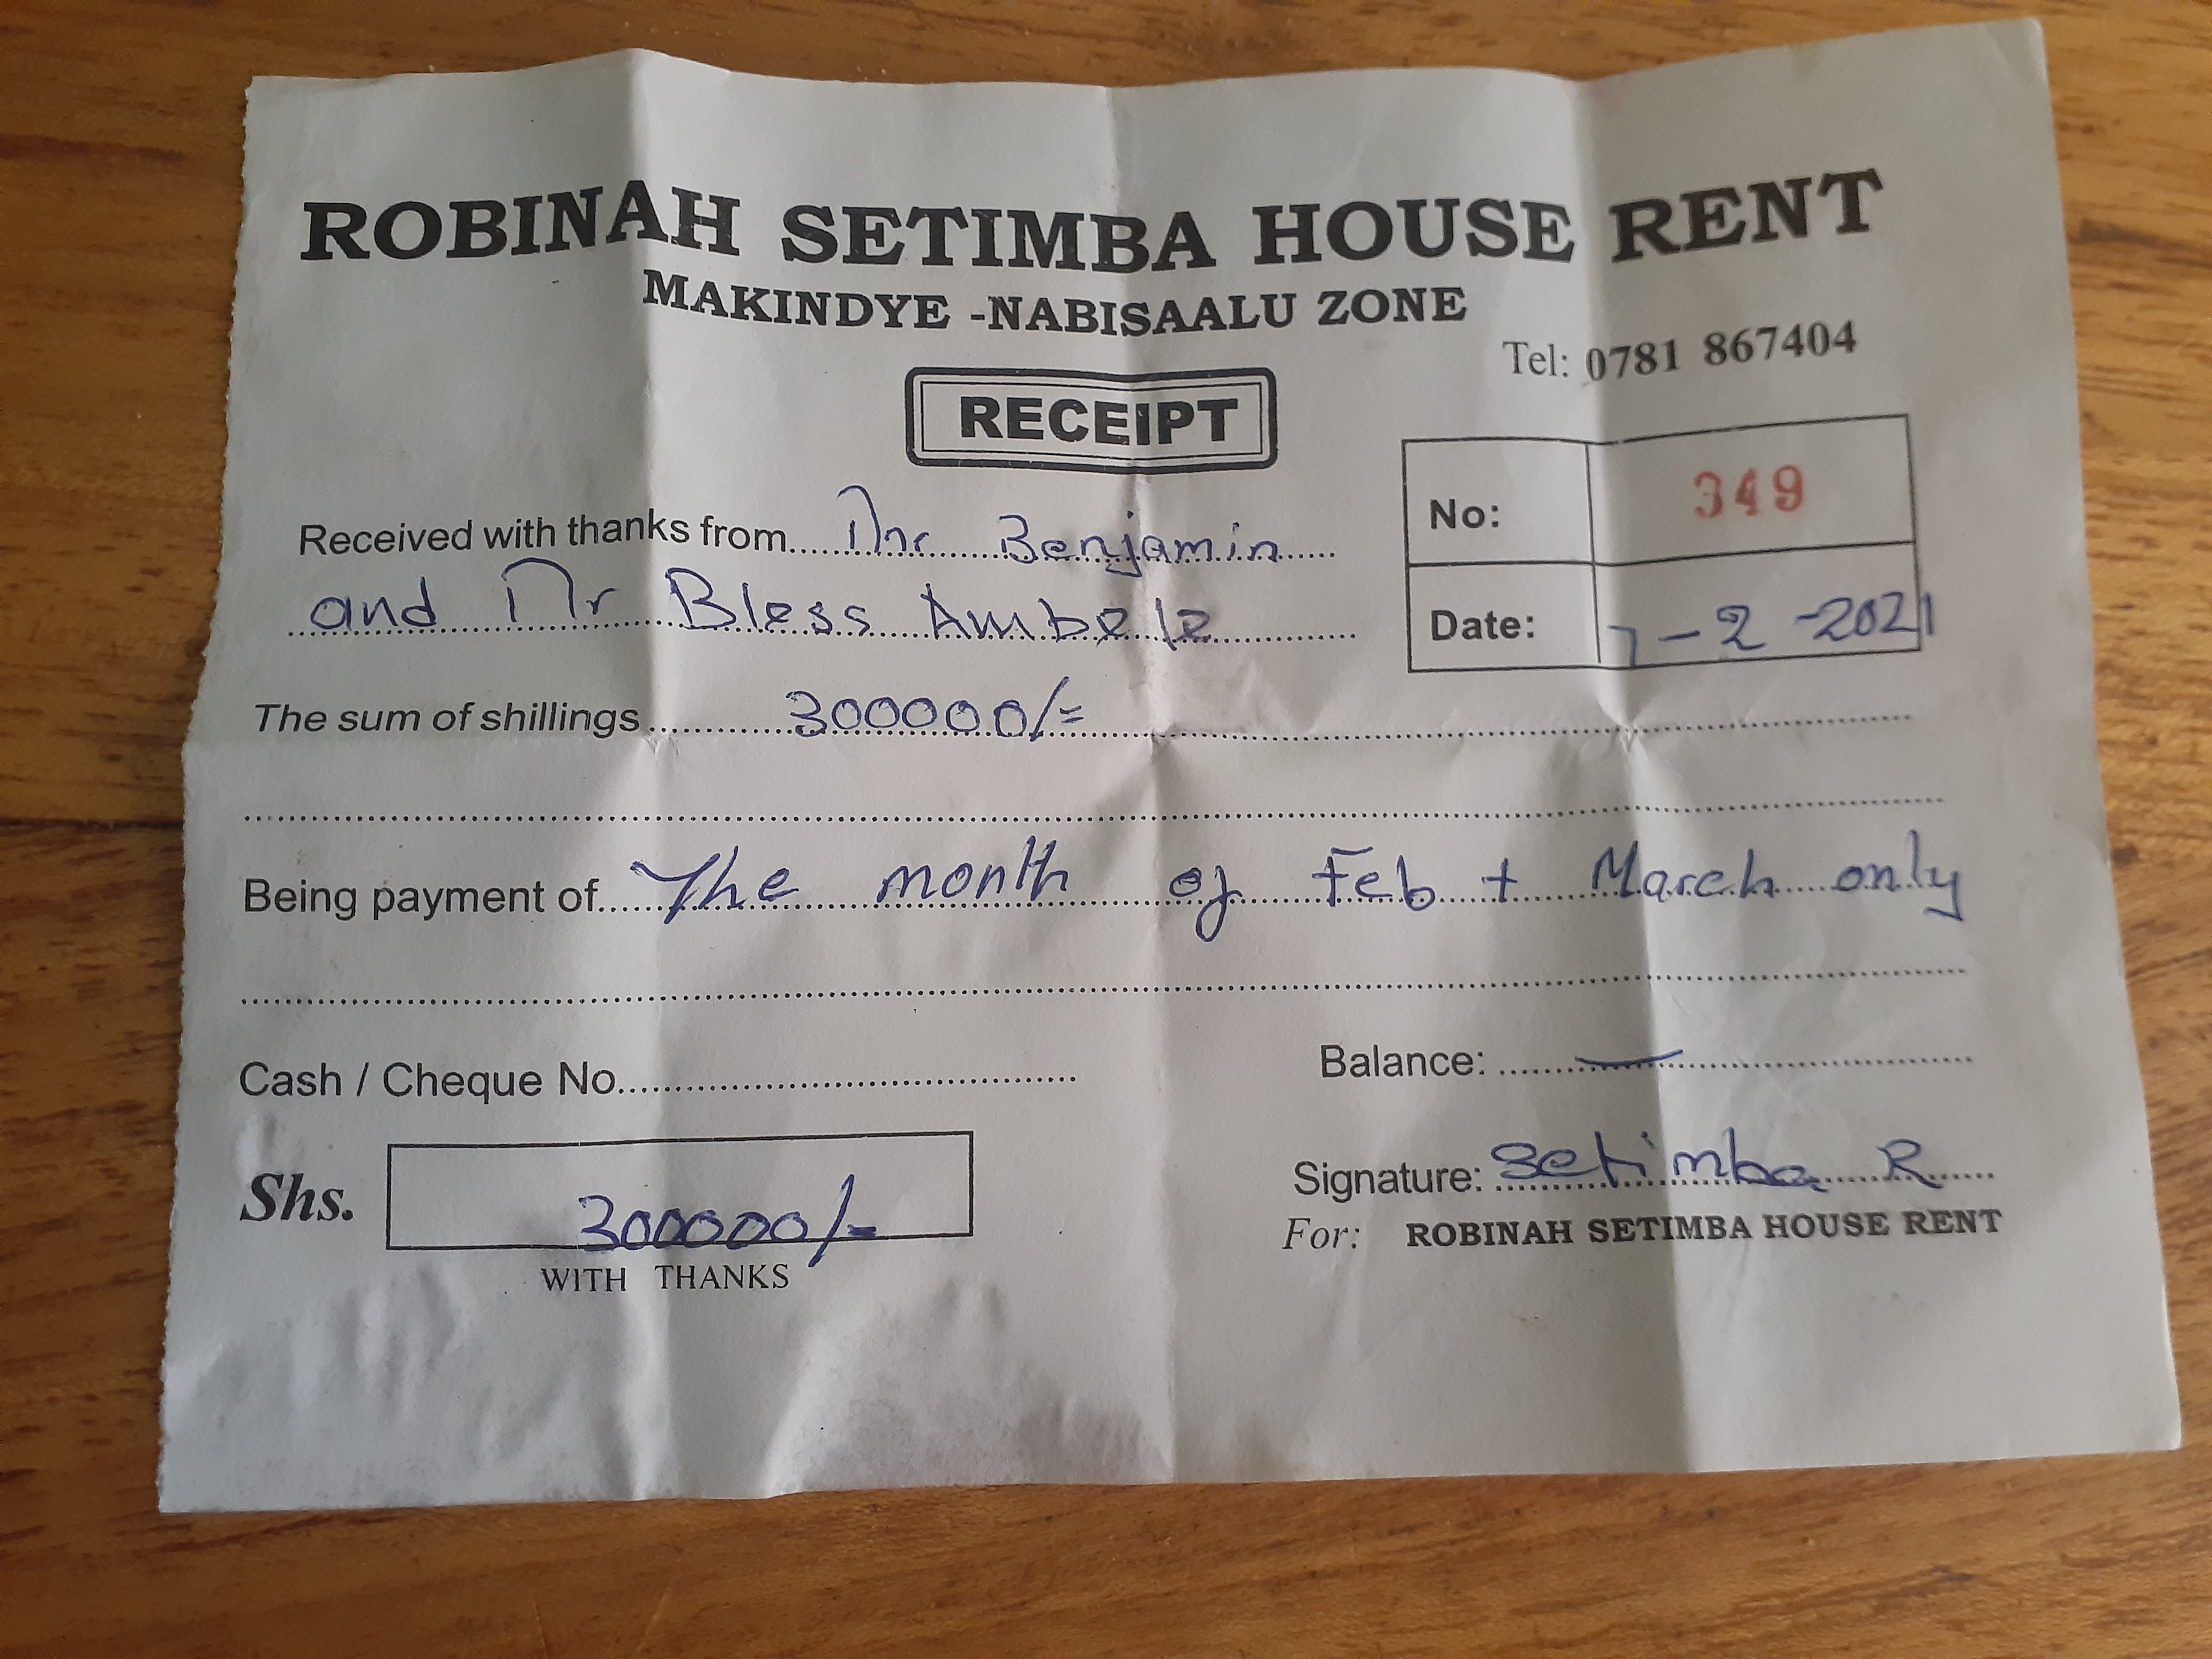 ROBINAH SETIMBA HOUSE RENT
MAKINDYE -NABISAALU ZONE
Tel: 0781 867404
RECEIPT
No: 349
Received with thanks from Mr Benjamin
and Mr Bless Ambele
Date: 7-2-2021
The sum of shillings 300000/=
Being payment of The month of Feb + March only
Cash / Cheque No.
Balance: —
Shs. 300000/=
Signature: Setimba R
For: ROBINAH SETIMBA HOUSE RENT
WITH THANKS